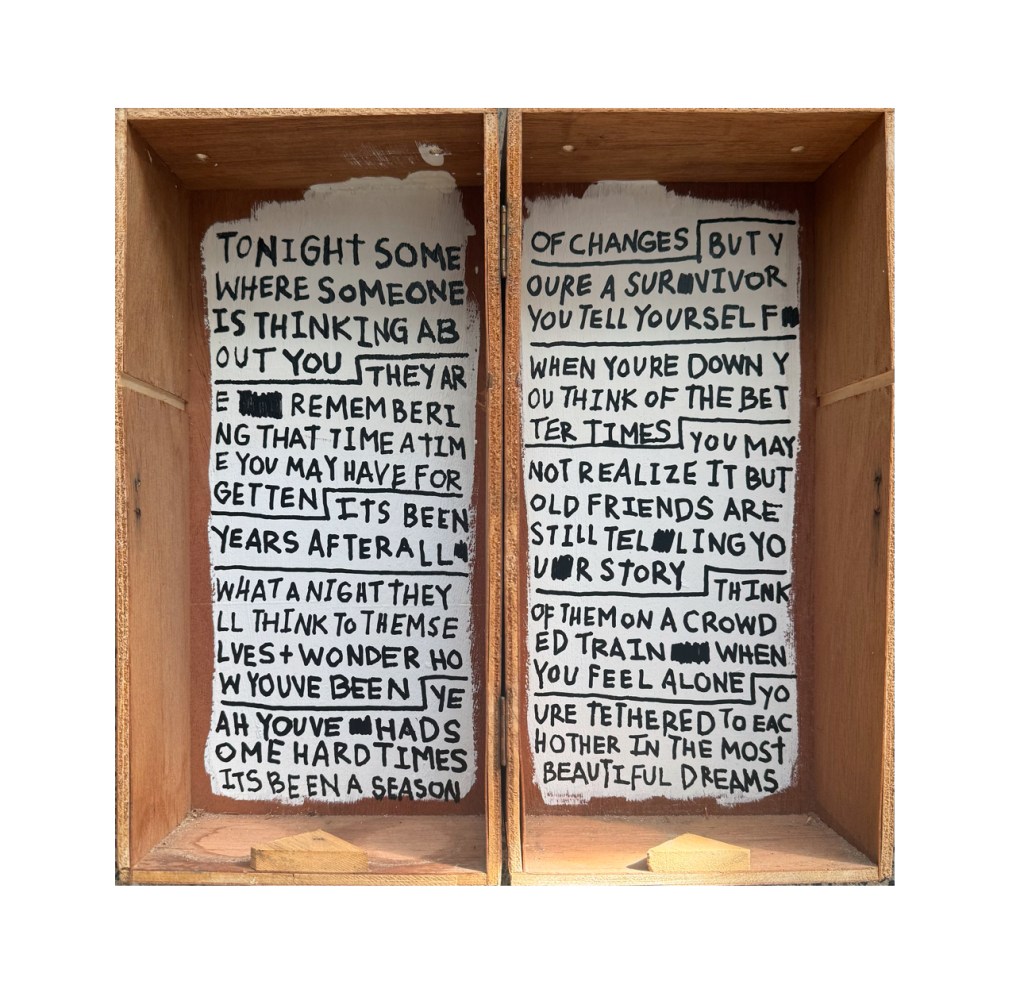 TONIGHT SOME
WHERE SOMEONE
IS THINKING AB
OUT YOU THEY AR
E REMEMBERI
NG THAT TIME A TIM
E YOU MAY HAVE FOR
GETTEN ITS BEEN
YEARS AFTER ALL
WHAT A NIGHT THEY
LL THINK TO THEMSE
LVES + WONDER HO
W YOUVE BEEN YE
AH YOUVE HAD S
OME HARD TIMES
ITS BEEN A SEASON
OF CHANGES BUT Y
OURE A SURVIVOR
YOU TELL YOURSELF
WHEN YOURE DOWN Y
OU THINK OF THE BET
TER TIMES YOU MAY
NOT REALIZE IT BUT
OLD FRIENDS ARE
STILL TELLING YO
UR STORY THINK
OF THEM ON A CROWD
ED TRAIN WHEN
YOU FEEL ALONE YO
URE TETHERED TO EAC
HOTHER IN THE MOST
BEAUTIFUL DREAMS